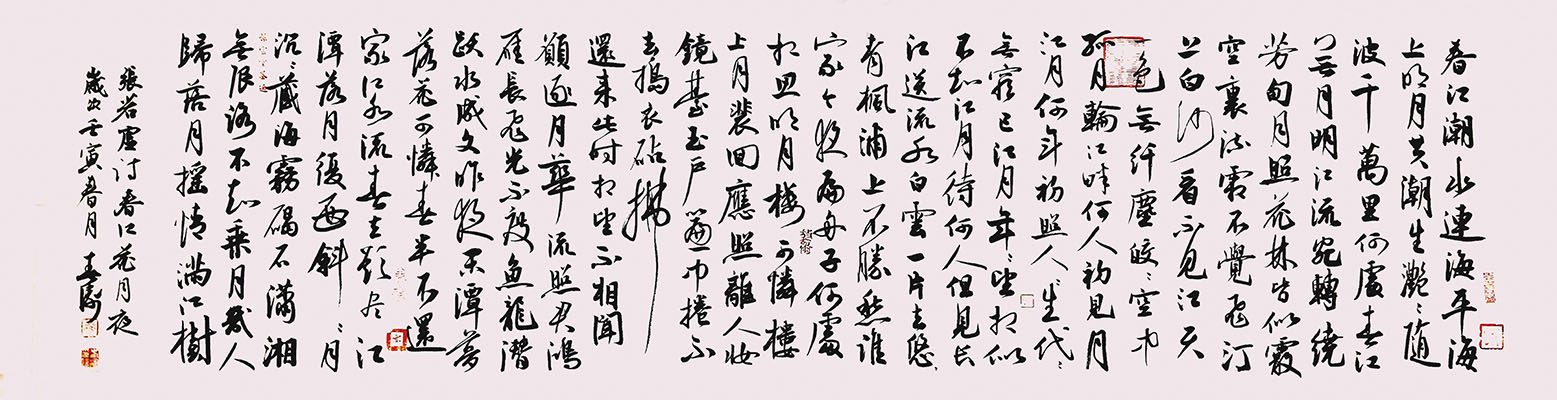 春江潮水連海平海
上明月共潮生灩〻隨
波千萬里何處春江
無月明江流宛轉繞
芳甸月照花林皆似霰
空裏流霜不覺飛汀
上白沙看不見江天
一色無纤塵皎〻空中
孤月輪江畔何人初見月
江月何年初照人〻生代〻
無窮已江月年〻望相似
不知江月待何人但見長
江送流水白雲一片去悠〻
青楓浦上不勝愁誰
家今夜扁舟子何處
相思明月樓可憐樓
上月裴回應照離人妝
鏡臺玉戶簾中捲不
去搗衣砧拂
還來此時相望不相聞
願逐月華流照君鴻
雁長飛光不度魚龍潛
躍水成文昨夜閑潭夢
落花可憐春半不還
家江水流春去欲盡江
潭落月復西斜〻月
沉〻藏海霧碣石瀟湘
無限路不知乘月幾人
歸落月摇情滿江樹
張若虛詩春江花月夜
歲次壬寅春月